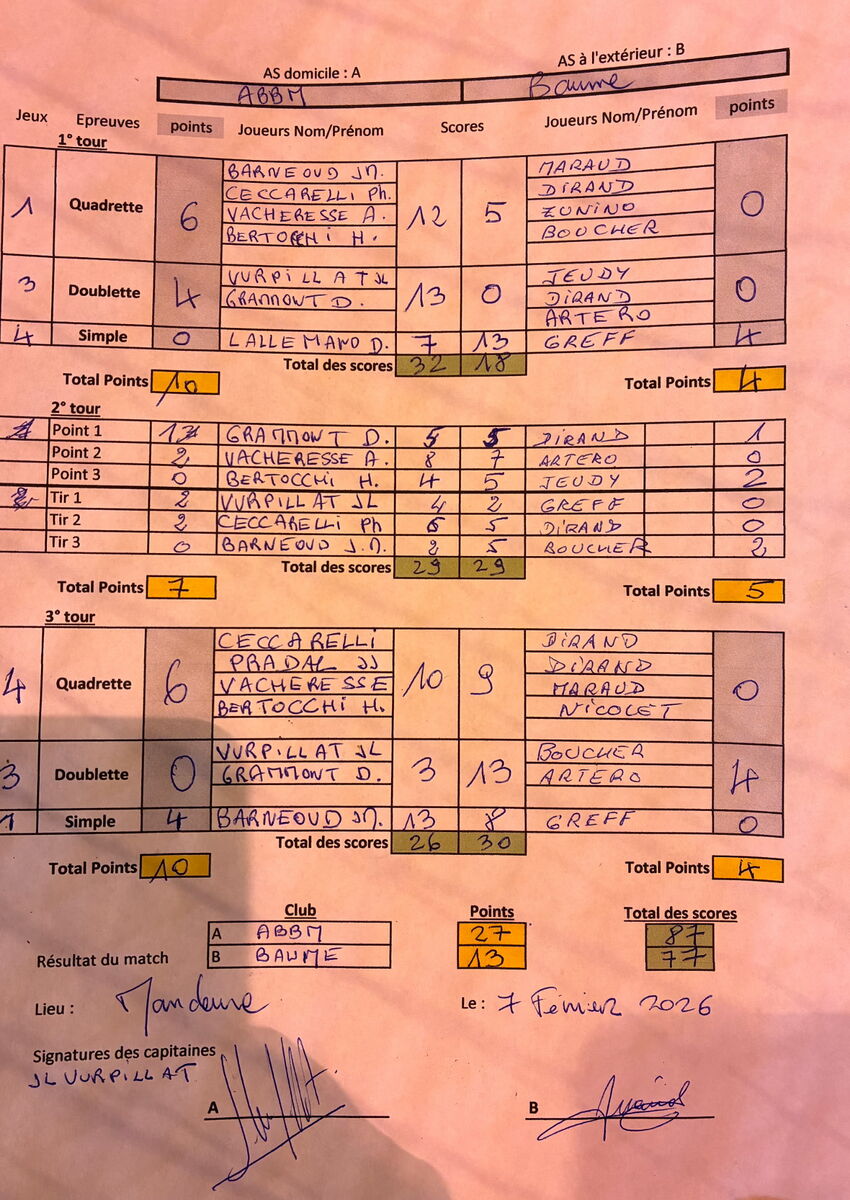 AS domicile : A AS à l'extérieur : B
ABBM Baume
Jeux Epreuves points Joueurs Nom/Prénom Scores Joueurs Nom/Prénom points
1° tour
1 Quadrette 6 12 5 0
BARNEOUD JM. MARAUD
CECCARELLI Ph. DIRAND
VACHERESSE A. ZUNINO
BERTOCCHI H. BOUCHER
3 Doublette 4 13 0 0
VURPILLAT JL JEUDY
GRAMMONT D. DIRAND
ARTERO
4 Simple 0 LALLEMAND D. 7 13 GREFF 4
Total des scores 32 18
Total Points 10 Total Points 4
2° tour
Point 1 1 GRAMMONT D. 5 5 DIRAND 1
Point 2 2 VACHERESSE A. 8 7 ARTERO 0
Point 3 0 BERTOCCHI H. 4 5 JEUDY 2
Tir 1 2 VURPILLAT JL 4 2 GREFF 0
Tir 2 2 CECCARELLI Ph 6 5 DIRAND 0
Tir 3 0 BARNEOUD J.M. 2 5 BOUCHER 2
Total des scores 29 29
Total Points 7 Total Points 5
3° tour
4 Quadrette 6 10 9 0
CECCARELLI DIRAND
PRADAL JJ DIRAND
VACHERESSE MARAUD
BERTOCCHI H. NICOLET
3 Doublette 0 3 13 4
VURPILLAT JL BOUCHER
GRAMMONT D. ARTERO
1 Simple 4 BARNEOUD JM. 13 8 GREFF 0
Total des scores 26 30
Total Points 10 Total Points 4
Club Points Total des scores
A ABBM 27 87
Résultat du match B BAUME 13 77
Lieu : Mandeure Le : 7 Février 2026
Signatures des capitaines
JL VURPILLAT
A B